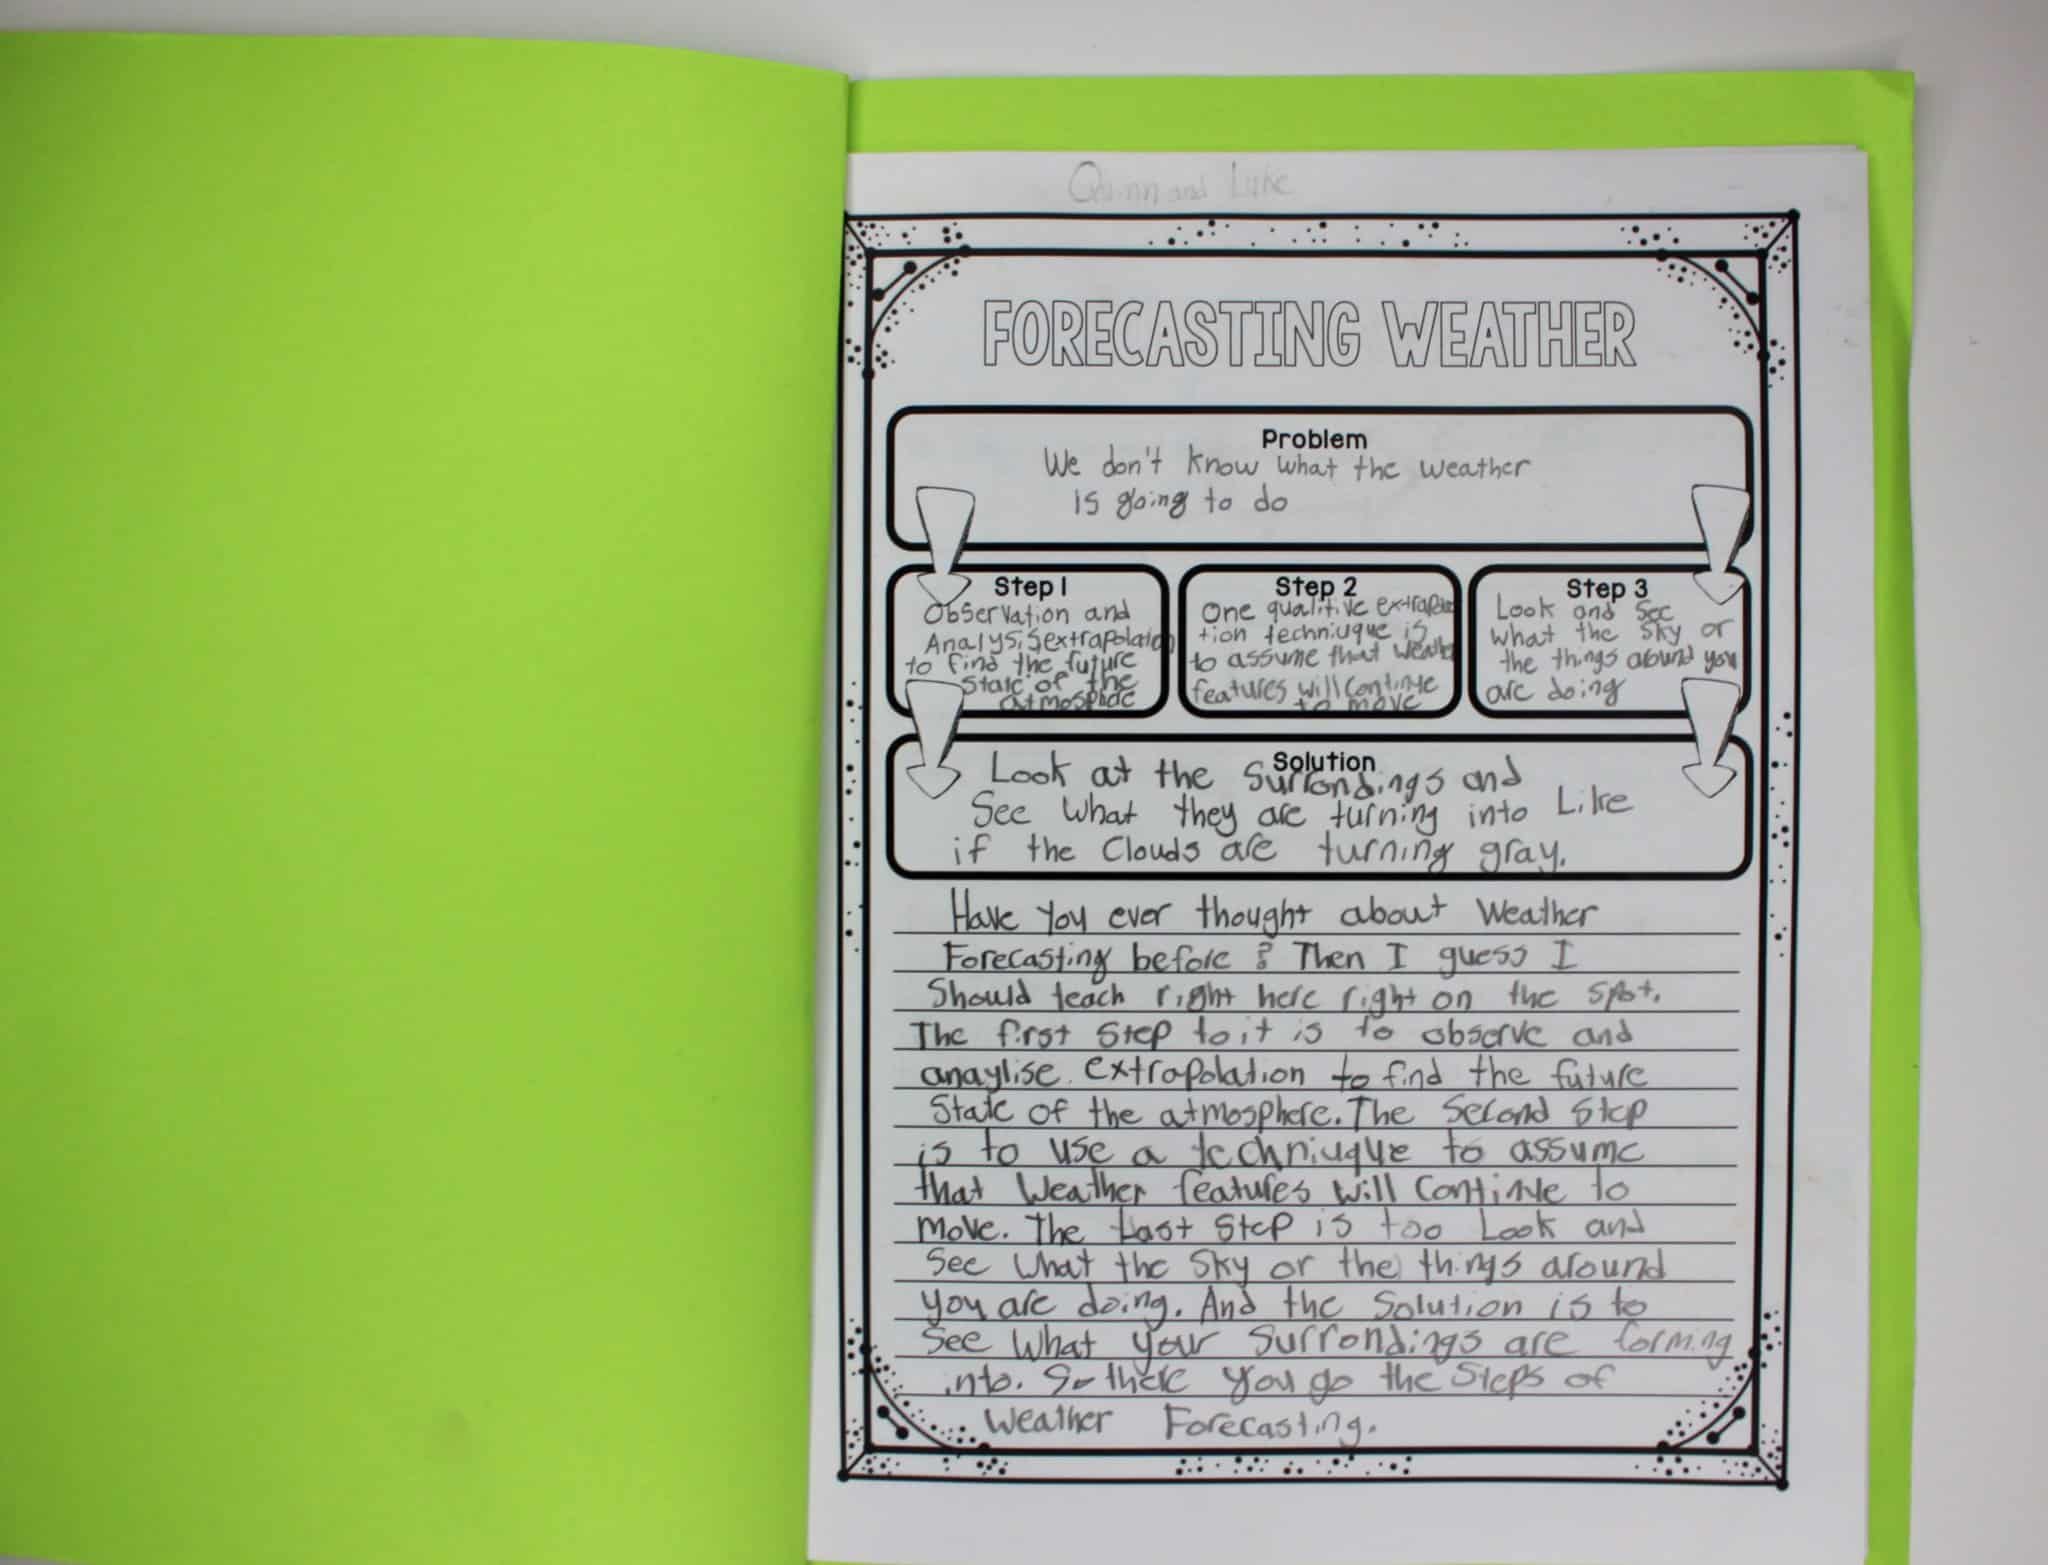 Quinn and Luke
FORECASTING WEATHER
Problem
We don't know what the weather
is going to do
Step 1
Observation and
Analysis extrapolation
to find the future
state of the
atmosphere
Step 2
One qualitive extrapola
tion techniuque is
to assume that weather
features will continue
to move
Step 3
Look and see
what the sky or
the things around you
are doing
Solution
Look at the Surrondings and
See what they are turning into Like
if the Clouds are turning gray.
Have you ever thought about Weather
Forecasting before? Then I guess I
Should teach right here right on the spot.
The first step to it is to observe and
anaylise extrapolation to find the future
State of the atmosphere. The Second Step
is to use a techniuque to assume
that Weather features will Continue to
move. The Last Step is too Look and
See what the Sky or the things around
you are doing. And the Solution is to
See what your Surrondings are forming
into. So there you go the Steps of
Weather Forecasting.